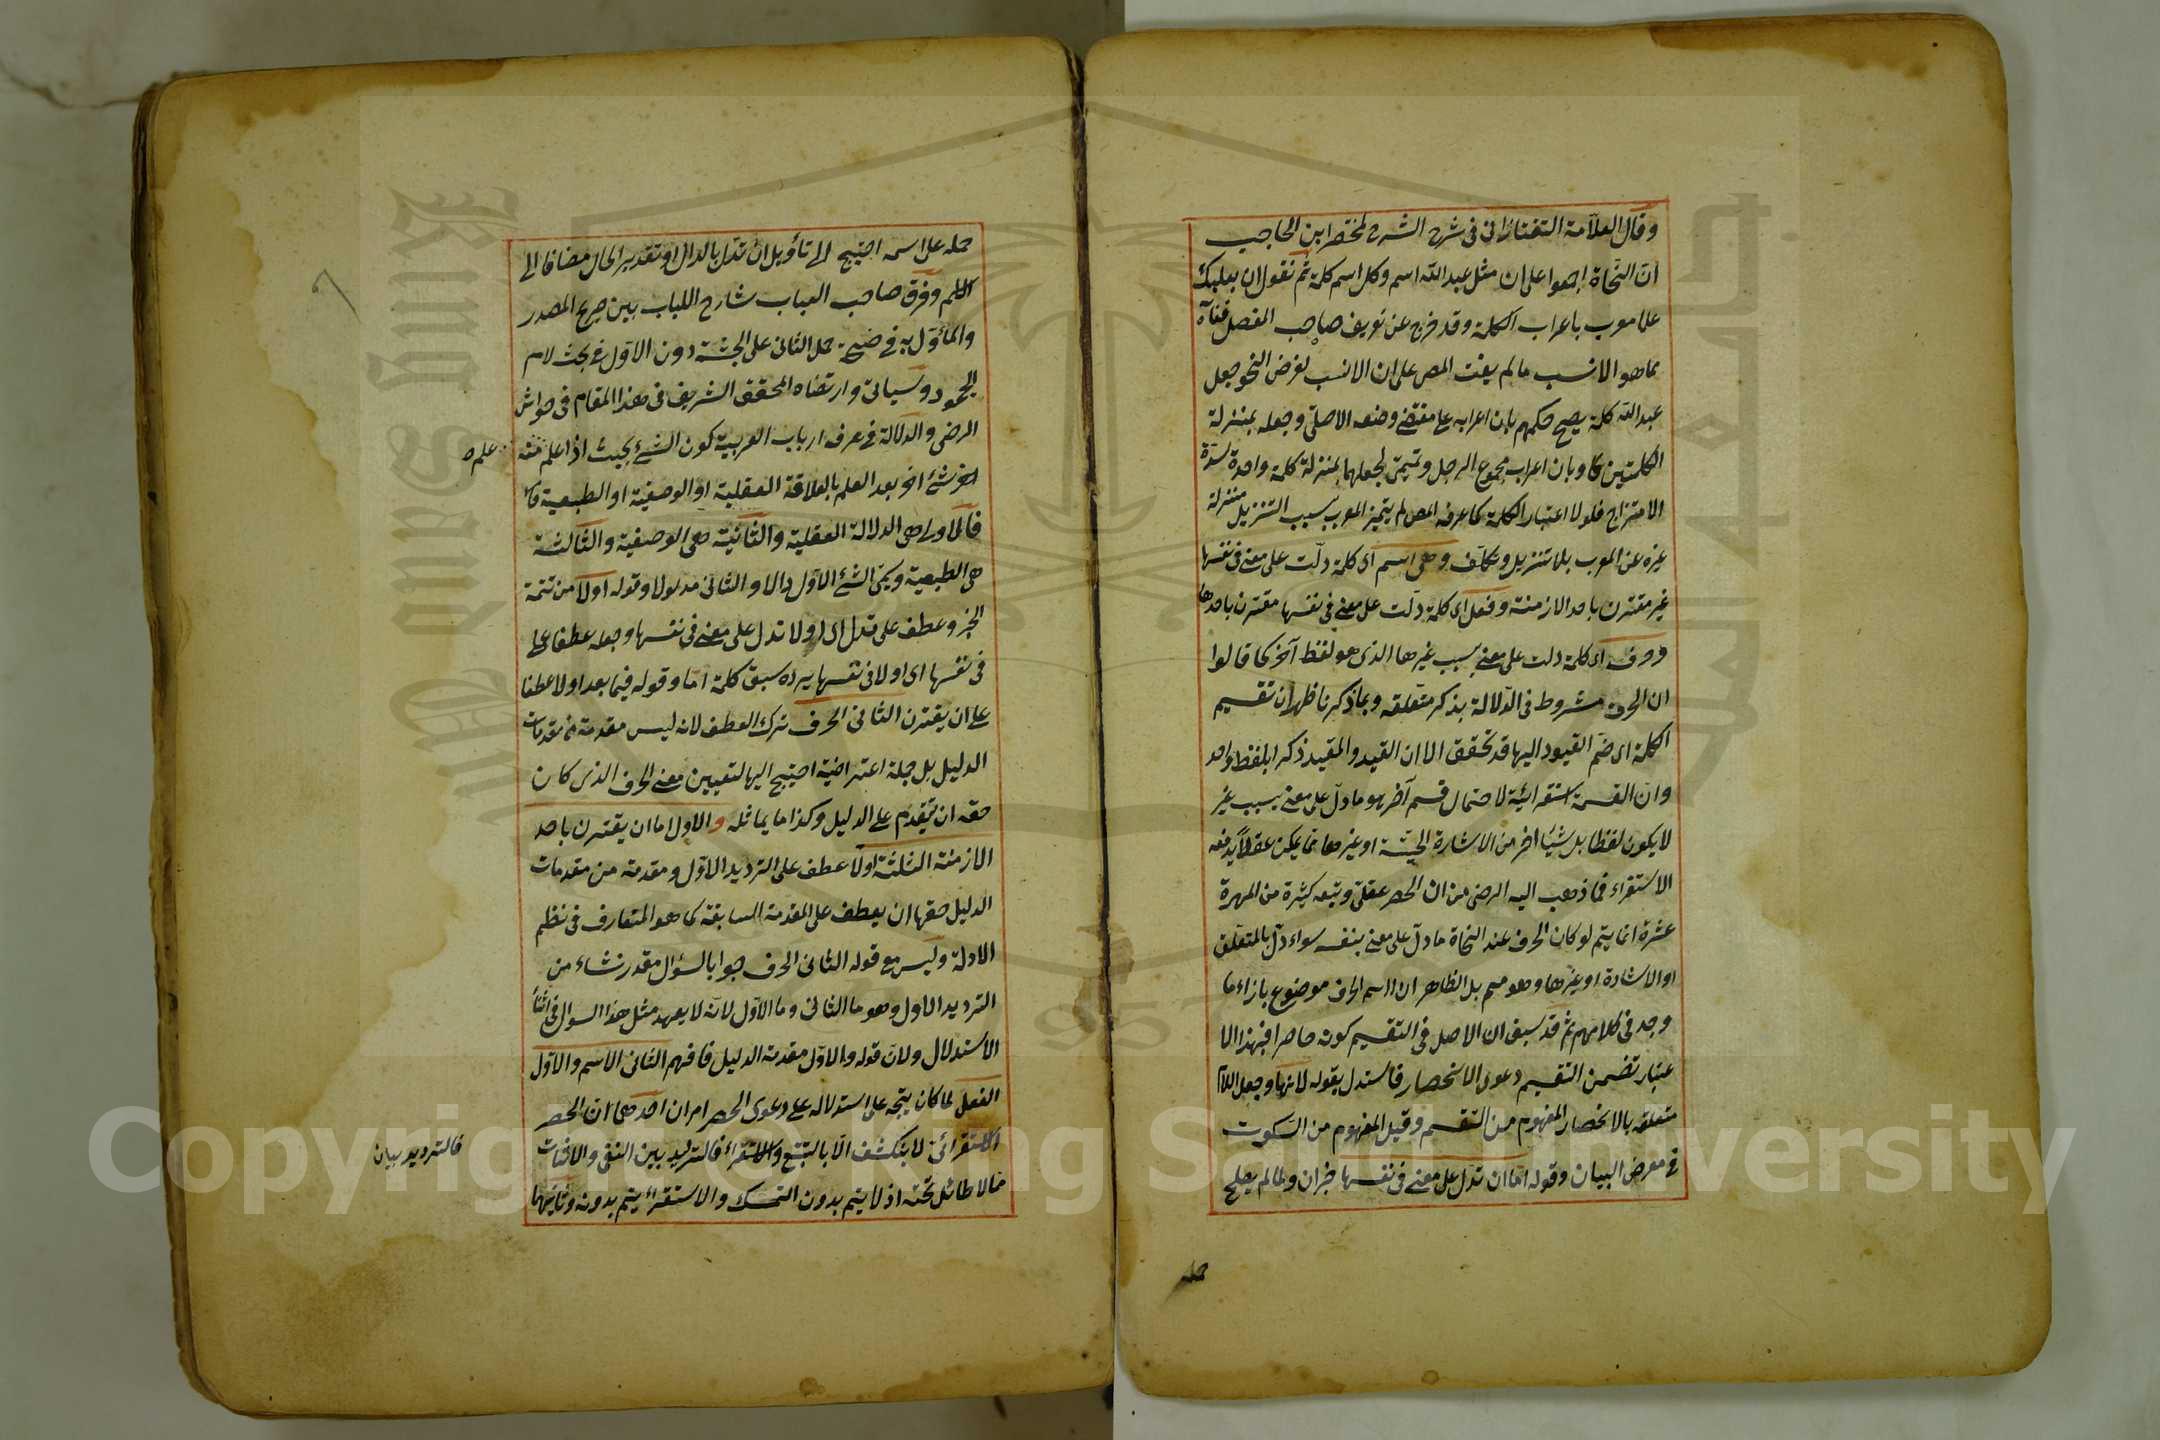 وقال العلامة التفتازانى فى شرح الشرح لمختصر ابن الحاجب
ان النحاة اجمعوا على ان مثل عبد الله اسم وكل اسم كلمة ثم نقول ان بعلبك
علم معرب باعراب الكلمة وقد خرج عن تعريف صاحب المفصل فتأ
بما هو الانسب ما لم يفت المص على ان الانسب لغرض النحو جعل
عبد الله كلمة يصح حكمهم بان اعرابه على مقتضى وضعه الاصلى وجعله بمنزلة
الكلمتين كا وبان اعراب مجموع الرجل وتميمى لجعلهما بمنزلة كلمة واحدة لشدة
الامتزاج فلولا اعتبار الكلمة كما عرفه المص لم يتميز المعرب بسبب التنزيل منزلة
غيره عن المعرب بلا تنزيل وتكلف وهى اسم اى كلمة دلت على معنى فى نفسها
غير مقترن باحد الازمنة وفعل اى كلمة دلت على معنى فى نفسها مقترن باحدها
وحرف اى كلمة دلت على معنى بسبب غيرها الذى هو لفظ آخر كما قالوا
ان الحرف مشروط فى الدلالة بذكر متعلقه وبما ذكرنا ظهر ان تقسيم
الكلمة اى ضم القيود اليها قد تحقق الا ان القيد والمقيد ذكرا بلفظ واحد
وان القسمة استقرائية لاحتمال قسم آخر هو ما دل على معنى بسبب غير
لا يكون لفظا بل شيئا اخر من الاشارة الحسية او غيرها مما يمكن عقلا يدفعه
الاستقراء فما ذهب اليه الرضى من ان الحصر عقلى وتبعه كثيرة من المهرة
عشرة انما يتم لو كان الحرف عند النحاة ما دل على معنى بنفسه سواء دل بالمتعلق
او الاشارة او غيرها وهو مم بل الظاهر ان اسم الحرف موضوع بازاء ما
وجد فى كلامهم ثم قد سبق ان الاصل فى التقسيم كونه حاصرا فبهذا الا
عتبار تضمن التقسيم دعوى الانحصار فاستدل بقوله لانها وجعل اللام
متعلقه بالانحصار المفهوم من التقسيم وقيل المفهوم من السكوت
فى معرض البيان وقوله اما ان تدل على معنى فى نفسها خبر ان ولما لم يصلح
حمله
حمله على اسمه احتيج الى تأويل ان تدل بالدال او تقدير الحال مضافا الى
الكلم وفرق صاحب العباب شارح اللباب بين صريح المصدر
والمأول به فى صحة حمل الثانى على الجثة دون الاول فى بحث لام
الجحود وسيأتى وارتضاه المحقق الشريف فى هذا المقام فى حواشى
الرضى والدلالة فى عرف ارباب العربية كون الشئ بحيث اذا علم منه
علم ه
اخر شئ اخر بعد العلم بالعلاقة العقلية او الوضعية او الطبعية
فالاولى هى الدلالة العقلية والثانية هى الوضعية والثالثة
هى الطبعية ويسمى الشئ الاول دالا والثانى مدلولا وقوله اولا من تتمة
الخبر وعطف على تدل اى او لا تدل على معنى فى نفسها وجعله عطفا على
فى نفسها اى او لا فى نفسها يرده سبق كلمة اما وقوله فيما بعد اولا عطفا
على ان يقترن الثانى الحرف ترك العطف لانه ليس مقدمة من مقدمات
الدليل بل جملة اعتراضية احتيج اليها لتعيين معنى الحرف الذى كان
حقه ان يقدم على الدليل وكذا ما يماثله والاول اما ان يقترن باحد
الازمنة الثلثة اولا عطف على الترديد الاول ومقدمة من مقدمات
الدليل حقها ان يعطف على المقدمة السابقة كما هو المتعارف فى نظم
الادلة وليس مع قوله الثانى الحرف جوابا لسؤال مقدر نشاء من
الترديد الاول وهو ما الثانى وما الاول لانه لا يعهد مثل هذا السوال فى اثنا
الاستدلال ولان قوله والاول مقدمة الدليل فافهم الثانى الاسم والاول
الفعل لما كان يتجه على استدلاله على دعوى الحصر امران احدهما ان الحصر
الاستقرائى لا ينكشف الا بالتتبع والاستقراء فالترديد بين النفى والاثبات
فالترديد بيان
مما لا طائل تحته اذ لا يتم بدون التمسك والاستقراء يتم بدونه وثانيهما
Copyright © King Saud University